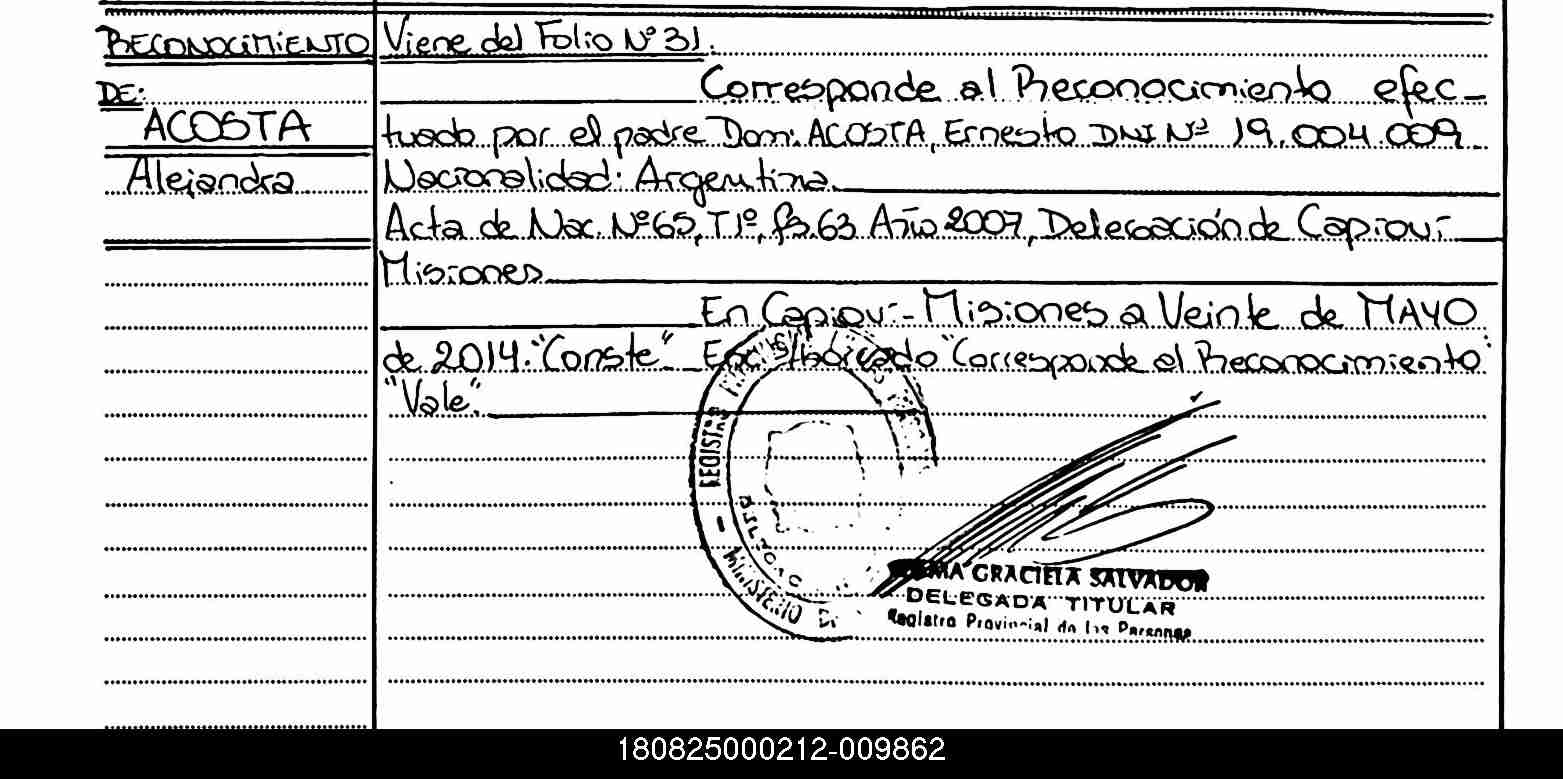 RECONOCIMIENTO
DE:
ACOSTA
Alejandra
Viene del Folio Nº 31.
Corresponde al Reconocimiento efec-
tuado por el padre Dom: ACOSTA, Ernesto DNI Nº 19.004.009
Nacionalidad: Argentina.
Acta de Nac. Nº 65, T1º, fs.63 Año 2007, Delegación de Capioví-
Misiones
En Capioví-Misiones a Veinte de MAYO
de 2014."Conste" "Corresponde al Reconocimiento"
"Vale".
REGISTRO
MINISTERIO DE
GRACIELA SALVADOR
DELEGADA TITULAR
Registro Provincial de las Personas
180825000212-009862